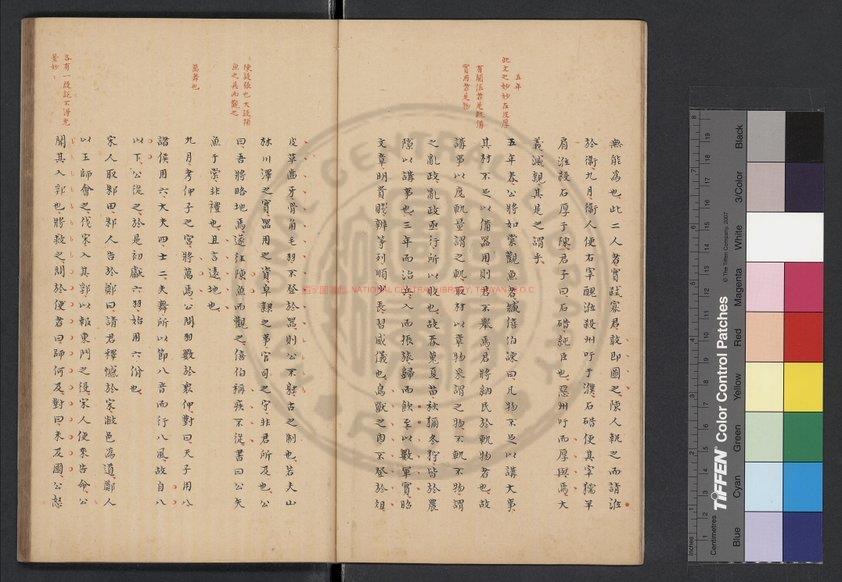 無能為也此二人者實弒寡君敢即圖之陳人執之而請涖
於衛九月衛人使右宰醜涖殺州吁于濮石碏使其宰獳羊
肩涖殺石厚于陳君子曰石碏純臣也惡州吁而厚與焉大
義滅親其是之謂乎
五年春公將如棠觀魚者臧僖伯諫曰凡物不足以講大事
其材不足以備器用則君不舉焉君將納民於軌物者也故
講事以度軌量謂之軌取材以章物采謂之物不軌不物謂
之亂政亂政亟行所以敗也故春蒐夏苗秋獮冬狩皆於農
隙以講事也三年而治兵入而振旅歸而飲至以數軍實昭
文章明貴賤辨等列順少長習威儀也鳥獸之肉不登於俎
皮革齒牙骨角毛羽不登於器則公不射古之制也若夫山
林川澤之實器用之資皁隸之事官司之守非君所及也公
曰吾將略地焉遂往陳魚而觀之僖伯稱疾不從書曰公矢
魚于棠非禮也且言遠地也
九月考仲子之宮將萬焉公問羽數於眾仲對曰天子用八
諸侯用六大夫四士二夫舞所以節八音而行八風故自八
以下公從之於是初獻六羽始用六佾也
宋人取邾田邾人告於鄭曰請君釋憾於宋敝邑為道鄭人
以王師會之伐宋入其郛以報東門之役宋人使來告命公
聞其入郛也將救之問於使者曰師何及對曰未及國公怒
五年
此文之妙妙在皮厚
陳設張也大設捕
魚之具而觀之
萬舞也
國家圖書館 NATIONAL CENTRAL LIBRARY, TAIWAN R.O.C
NATIONAL CENTRAL LIBRARY
TIFFEN Color Control Patches
© The Tiffen Company, 2007
Centimetres
Inches
Blue
Cyan
Green
Yellow
Red
Magenta
White
3/Color
Black